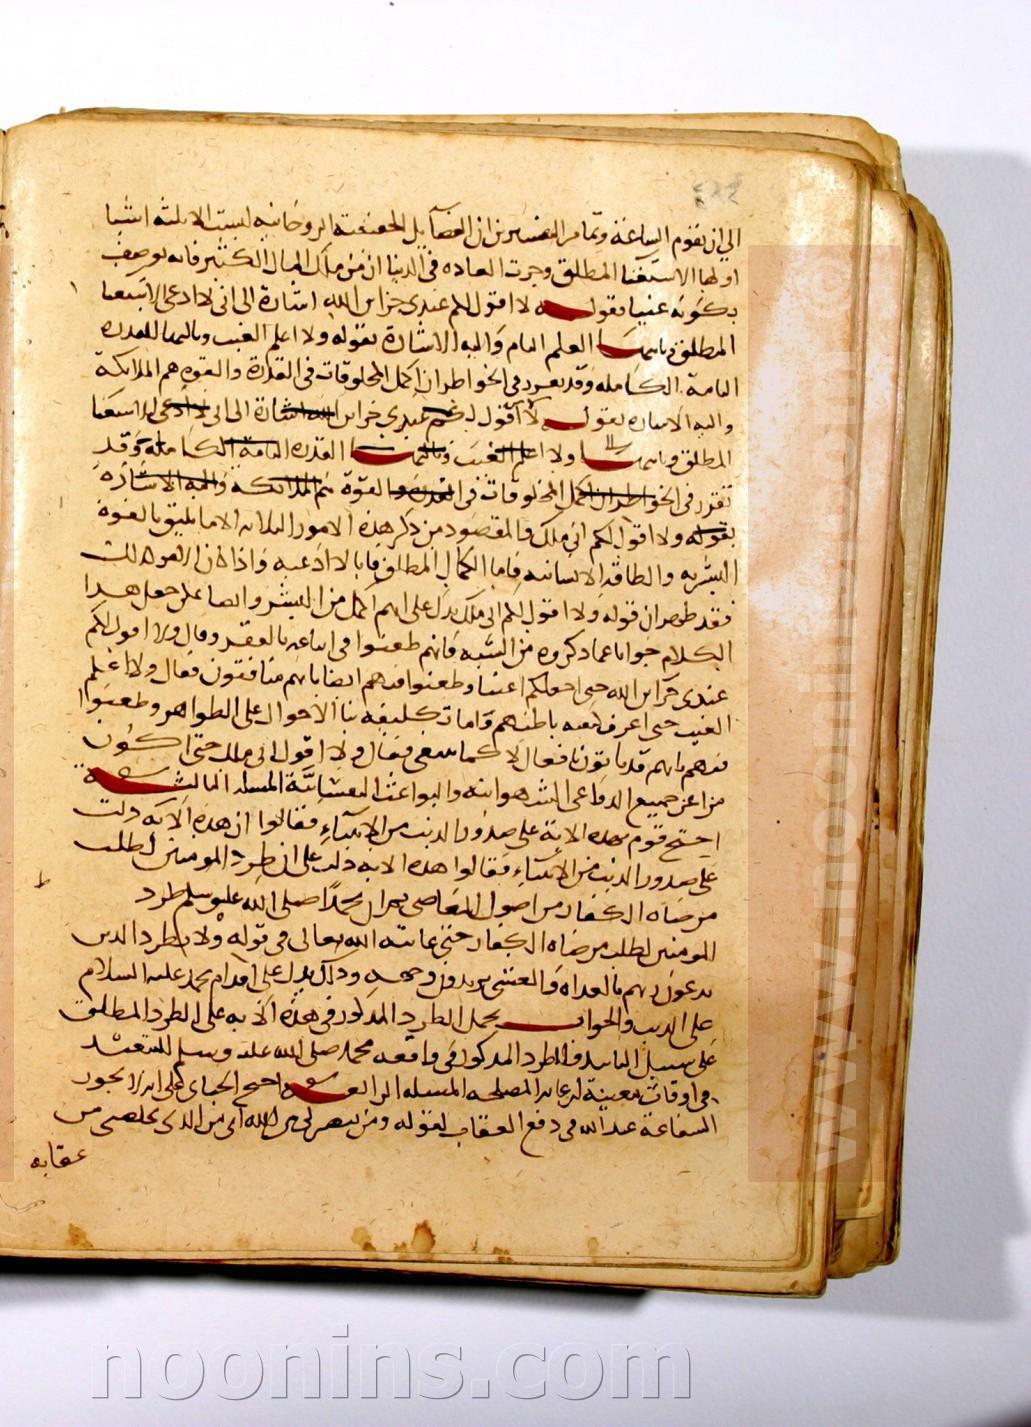 الى ان تقوم الساعة وتمام التفسيرين ان الفضايل الحقيقية الروحانية ليست الا ثلثة اشيا
اولها الاستغنا المطلق وجرت العاده في الدنيا ان من ملك المال الكثير فانه يوصف
بكونه غنيا فقوله لا اقول لكم عندي خزاين الله اشارة الى اني لا ادعى الاستغنا
المطلق وثانيها العلم التام واليه الاشارة بقوله ولا اعلم الغيب وثالثها القدره
التامة الكاملة وقد تقرر في الخواطر ان اكمل المخلوقات في القدرة والقوه هم الملائكة
واليه الاشاره بقوله لا اقول لكم عندي خزاين الله اشارة الى اني لا ادعى الاستغنا
المطلق وثانيها ولا اعلم الغيب وثالثها القدره التامة الكاملة وقد
تقرر في الخواطر ان اكمل المخلوقات في القدرة والقوة هم الملائكة واليه الاشارة
بقوله ولا اقول لكم اني ملك والمقصود من ذكر هذه الامور الثلاثة الا ما يليق بالقوة
البشريه والطاقة الانسانيه فاما الكمال المطلق فانا لا ادعيه واذا كان
فقد ظهر ان قوله ولا اقول لكم اني ملك يدل على انهم اكمل من البشر وايضا على جعل هذا
الكلام جوابا عما ذكروه من الشبه فانهم طعنوا في اتباعه بالفقر وقال ولا اقول لكم
عندي خزاين الله حتى اجعلكم اغنيا وطعنوا فيهم ايضا بانهم منافقون فقال ولا اعلم
الغيب حتى اعرف كيفيه باطنهم وانما تكليفه بنا الاحوال على الظواهر وطعنوا
فيهم بانهم قد ياتون بافعال لا كما ينبغي فقال ولا اقول اني ملك حتى اكون
مبرا عن جميع الدواعي الشهوانيه والبواعث المسله الثالثة
احتج قوم بهذه الاية على صدور الذنب من الانبياء فقالوا ان هذه الايه دلت
على صدور الذنب من الانبياء فقالوا هذه الايه دلت على ان طرد المومنين لطلب
مرضاه الكفار من اصول المعاصي ثم ان محمدا صلى الله عليه وسلم طرد
المومنين لطلب مرضاه الكفار حتى عاتبه الله تعالى في قوله ولا تطرد الذين
يدعون ربهم بالغداه والعشي يريدون وجهه وذلك يدل على اقدام محمد عليه السلام
على الذنب والجواب يحمل الطرد المذكور في هذه الايه على الطرد المطلق
على سبيل التابيد والطرد المذكور في واقعه محمد صلى الله عليه وسلم
في اوقات معينة لرعاية المصلحه المسله الرابعة احتج الجباى على انه لا يجوز
الشفاعة عند الله في دفع العقاب لقوله ومن ينصرني من الله اى من الذى يخلصني من
عقابه
noonins.com